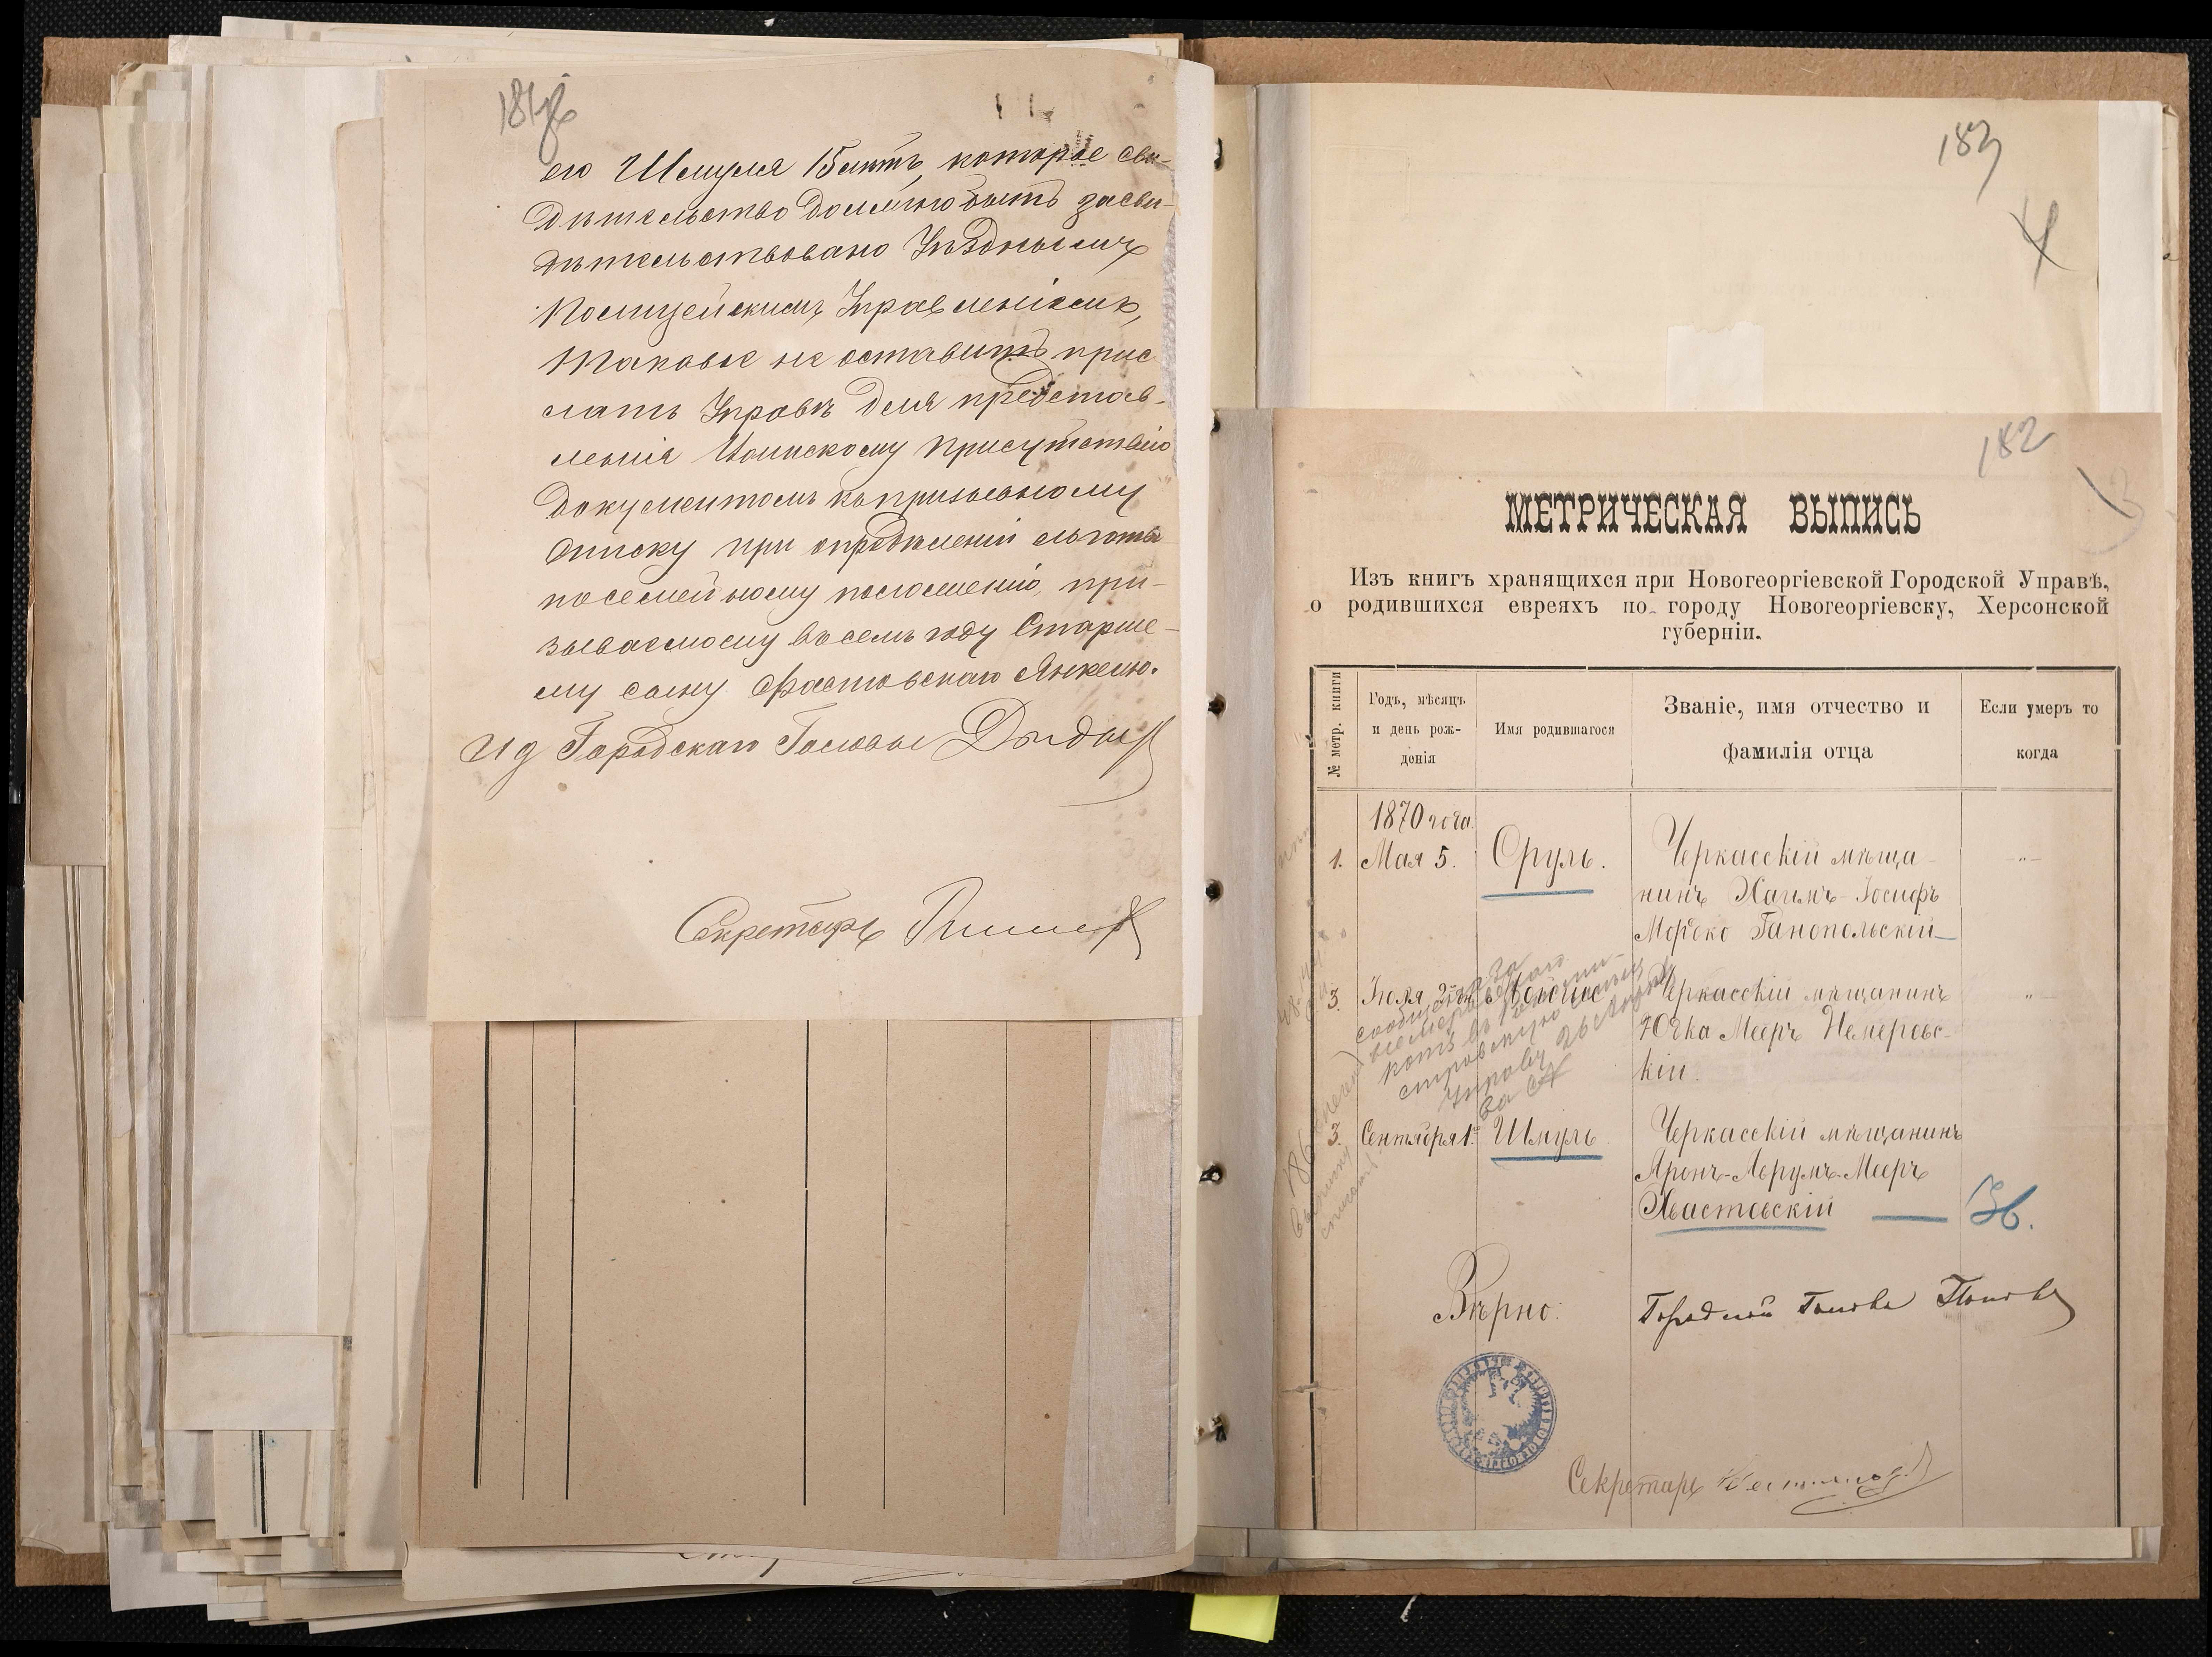 его Шмуля 15 лѣтъ, которое сви-
дѣтельство должно быть засви-
дѣтельствовано Уѣзднымъ
Полицейскимъ Управленіемъ,
таковые не оставитъ прис
лать Управѣ для представ-
ленія Воинскому Присутствію
документомъ къ призывному
списку при опредѣленіи льготы
по семейному положенію, при-
зываемому въ семъ году Старше-
му сыну Фастовскаго Янкелю.
И д Городскаго Головы
Секретарь
183
182
МЕТРИЧЕСКАЯ ВЫПИСЬ
Изъ книгъ хранящихся при Новогеоргіевской Городской Управѣ,
о родившихся евреяхъ по городу Новогеоргіевску, Херсонской
губерніи.
№ метр. книги
Годъ, мѣсяцъ
и день рож-
денія
Имя родившагося
Званіе, имя отчество и
фамилія отца
Если умеръ то
когда
1870 года.
1. Мая 5. Сруль. Черкасскій мѣща-
нинъ Хаимъ-Іосифъ
Мордко Ганопольскій
3. Іюля 2го Мойше Черкасскій мѣщанинъ
Юдка Мееръ Немеровс-
кій.
3. Сентября 1го Шмуль. Черкасскій мѣщанинъ
Аронъ-Аврумъ-Мееръ
Хвастовскій
Вѣрно: Городской Голова Поповъ
Секретарь